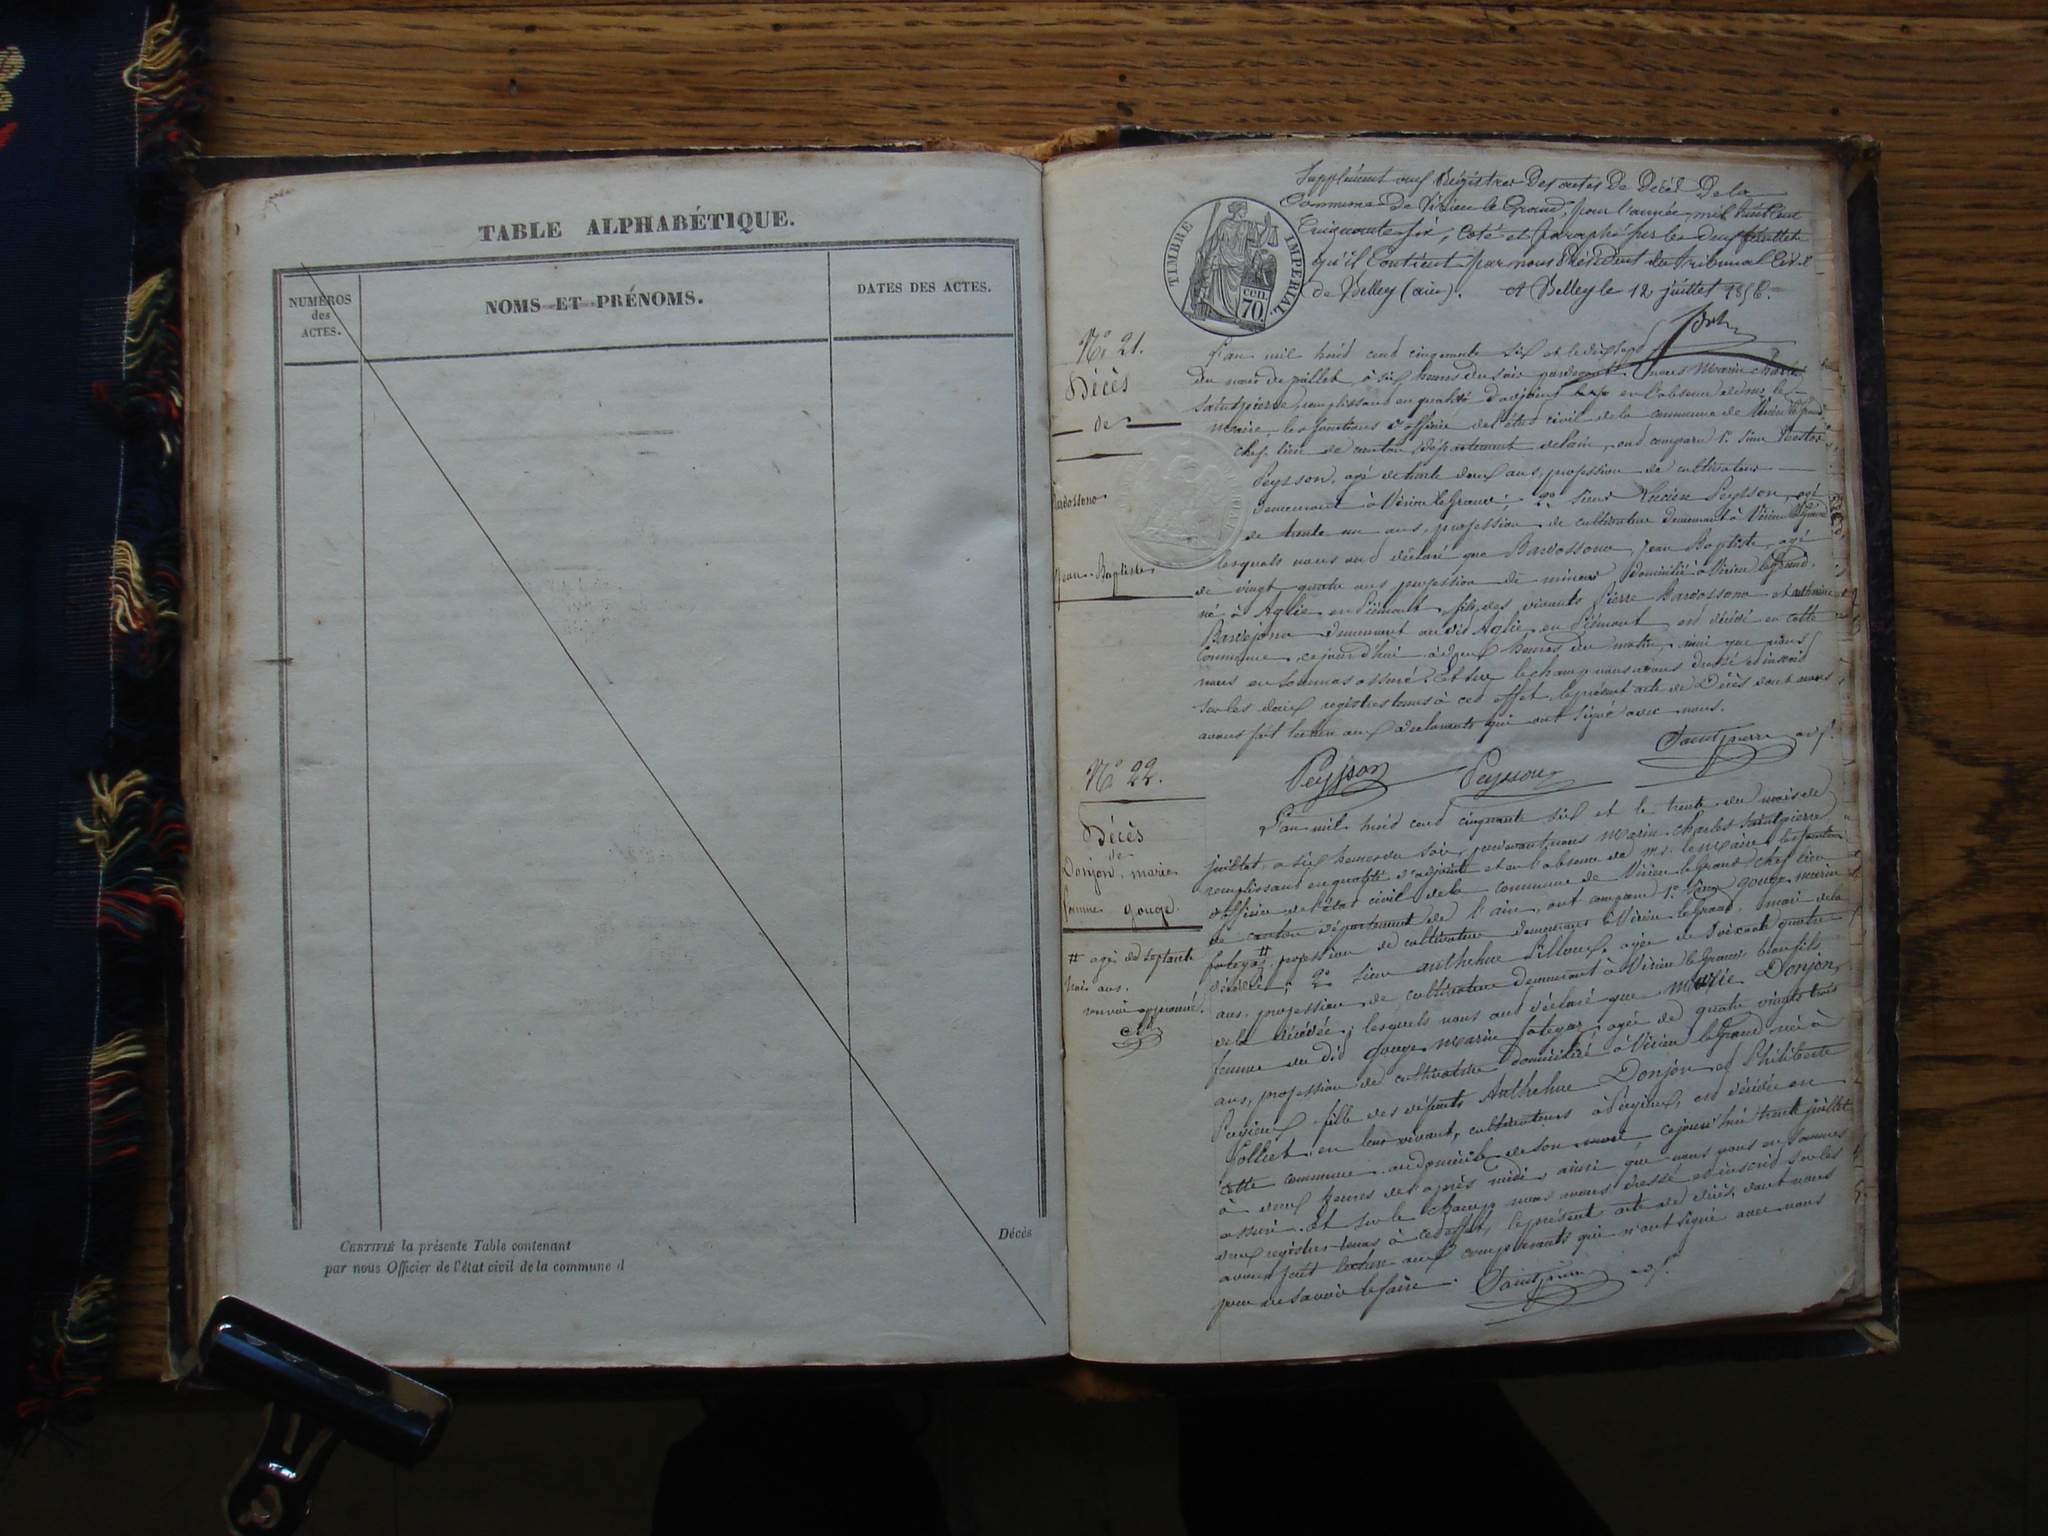 TABLE ALPHABÉTIQUE.
NUMÉROS
des
ACTES.
NOMS ET PRÉNOMS.
DATES DES ACTES.
Décès
CERTIFIÉ la présente Table contenant
par nous Officier de l'état civil de la commune d
Supplément aux Régistres Des actes De Décès De la
Commune De Virieu le Grand, pour l'année mil huit cent
Cinquante six, Coté et paraphé sur les deux feuillets
qu'il Contient par nous Président du Tribunal Civil
de Belley (ain). A Belley le 12 juillet 1856.
TIMBRE IMPERIAL.
cen.
70.
N° 21.
Décès
de
Jean-Baptiste
L'an mil huit cent cinquante six et le dix sept
du mois de juillet à six heures du soir pardevant nous Marin Charles
Saintpierre, remplissant en qualité d'adjoint en l'absence de mr. le
maire, les fonctions d'officier de l'état civil de la commune de Virieu le grand
chef lieu de canton département de l'ain, ont comparu 1° sieur
Peysson, agé de trente deux ans, profession de cultivateur
demeurant à Virieu le Grand; 2° sieur Lucien Peysson, agé
de trente un ans, profession de cultivateur demeurant à Virieu le Grand
lesquels nous ont déclaré que Bardossono, Jean Baptiste, agé
de vingt quatre ans profession de mineur, domicilié à Virieu le Grand,
né à Aglie en Piémont, fils des vivants Pierre Bardossono et
demeurant au dit Aglie en Piémont, est décédé en cette
Commune, cejourd'hui à deux heures du matin, ainsi que nous
nous en sommes assuré. Et sur le champ nous avons dressé et inscrit
sur les deux registres tenus à cet effet, le présent acte de Décès dont nous
avons fait lecture aux déclarants qui ont signé avec nous.
Peysson Peysson Saintpierre adj.
N° 22.
Décès
de
Donjon, marie
femme gouge
# agé de septante
trois ans.
renvoi approuvé.
L'an mil huit cent cinquante six et le trente du mois de
juillet, à six heures du soir, pardevant nous Marin Charles Saintpierre
remplissant en qualité d'adjoint et en l'absence de mr. le maire les fonctions
d'officier de l'état civil de la commune de Virieu le Grand chef lieu
de canton département de l'ain, ont comparu 1° sieur gouge marin
# profession de cultivateur demeurant à Virieu le Grand, mari de la
décédée; 2° sieur anthelme agée de soixante quatre
ans, profession de cultivateur demeurant à Virieu le Grand beau fils
de la décédée; lesquels nous ont déclaré que Marie Donjon,
femme du dit gouge marin agée de quatre vingts trois
ans, profession de cultivatrice domiciliée à Virieu le Grand née à
Pugieux fille des défunts Anthelme Donjon et Philiberte
Colliet en leur vivant, cultivateurs à Pugieux, est décédée en
cette commune au domicile de son mari cejourd'hui trente juillet
à deux heures de l'après midi, ainsi que nous nous en sommes
assuré. Et sur le champ nous avons dressé et inscrit sur les
deux registres tenus à cet effet, le présent acte de décès, dont nous
avons fait lecture aux comparants qui n'ont signé avec nous
pour ne savoir le faire. Saintpierre adj.